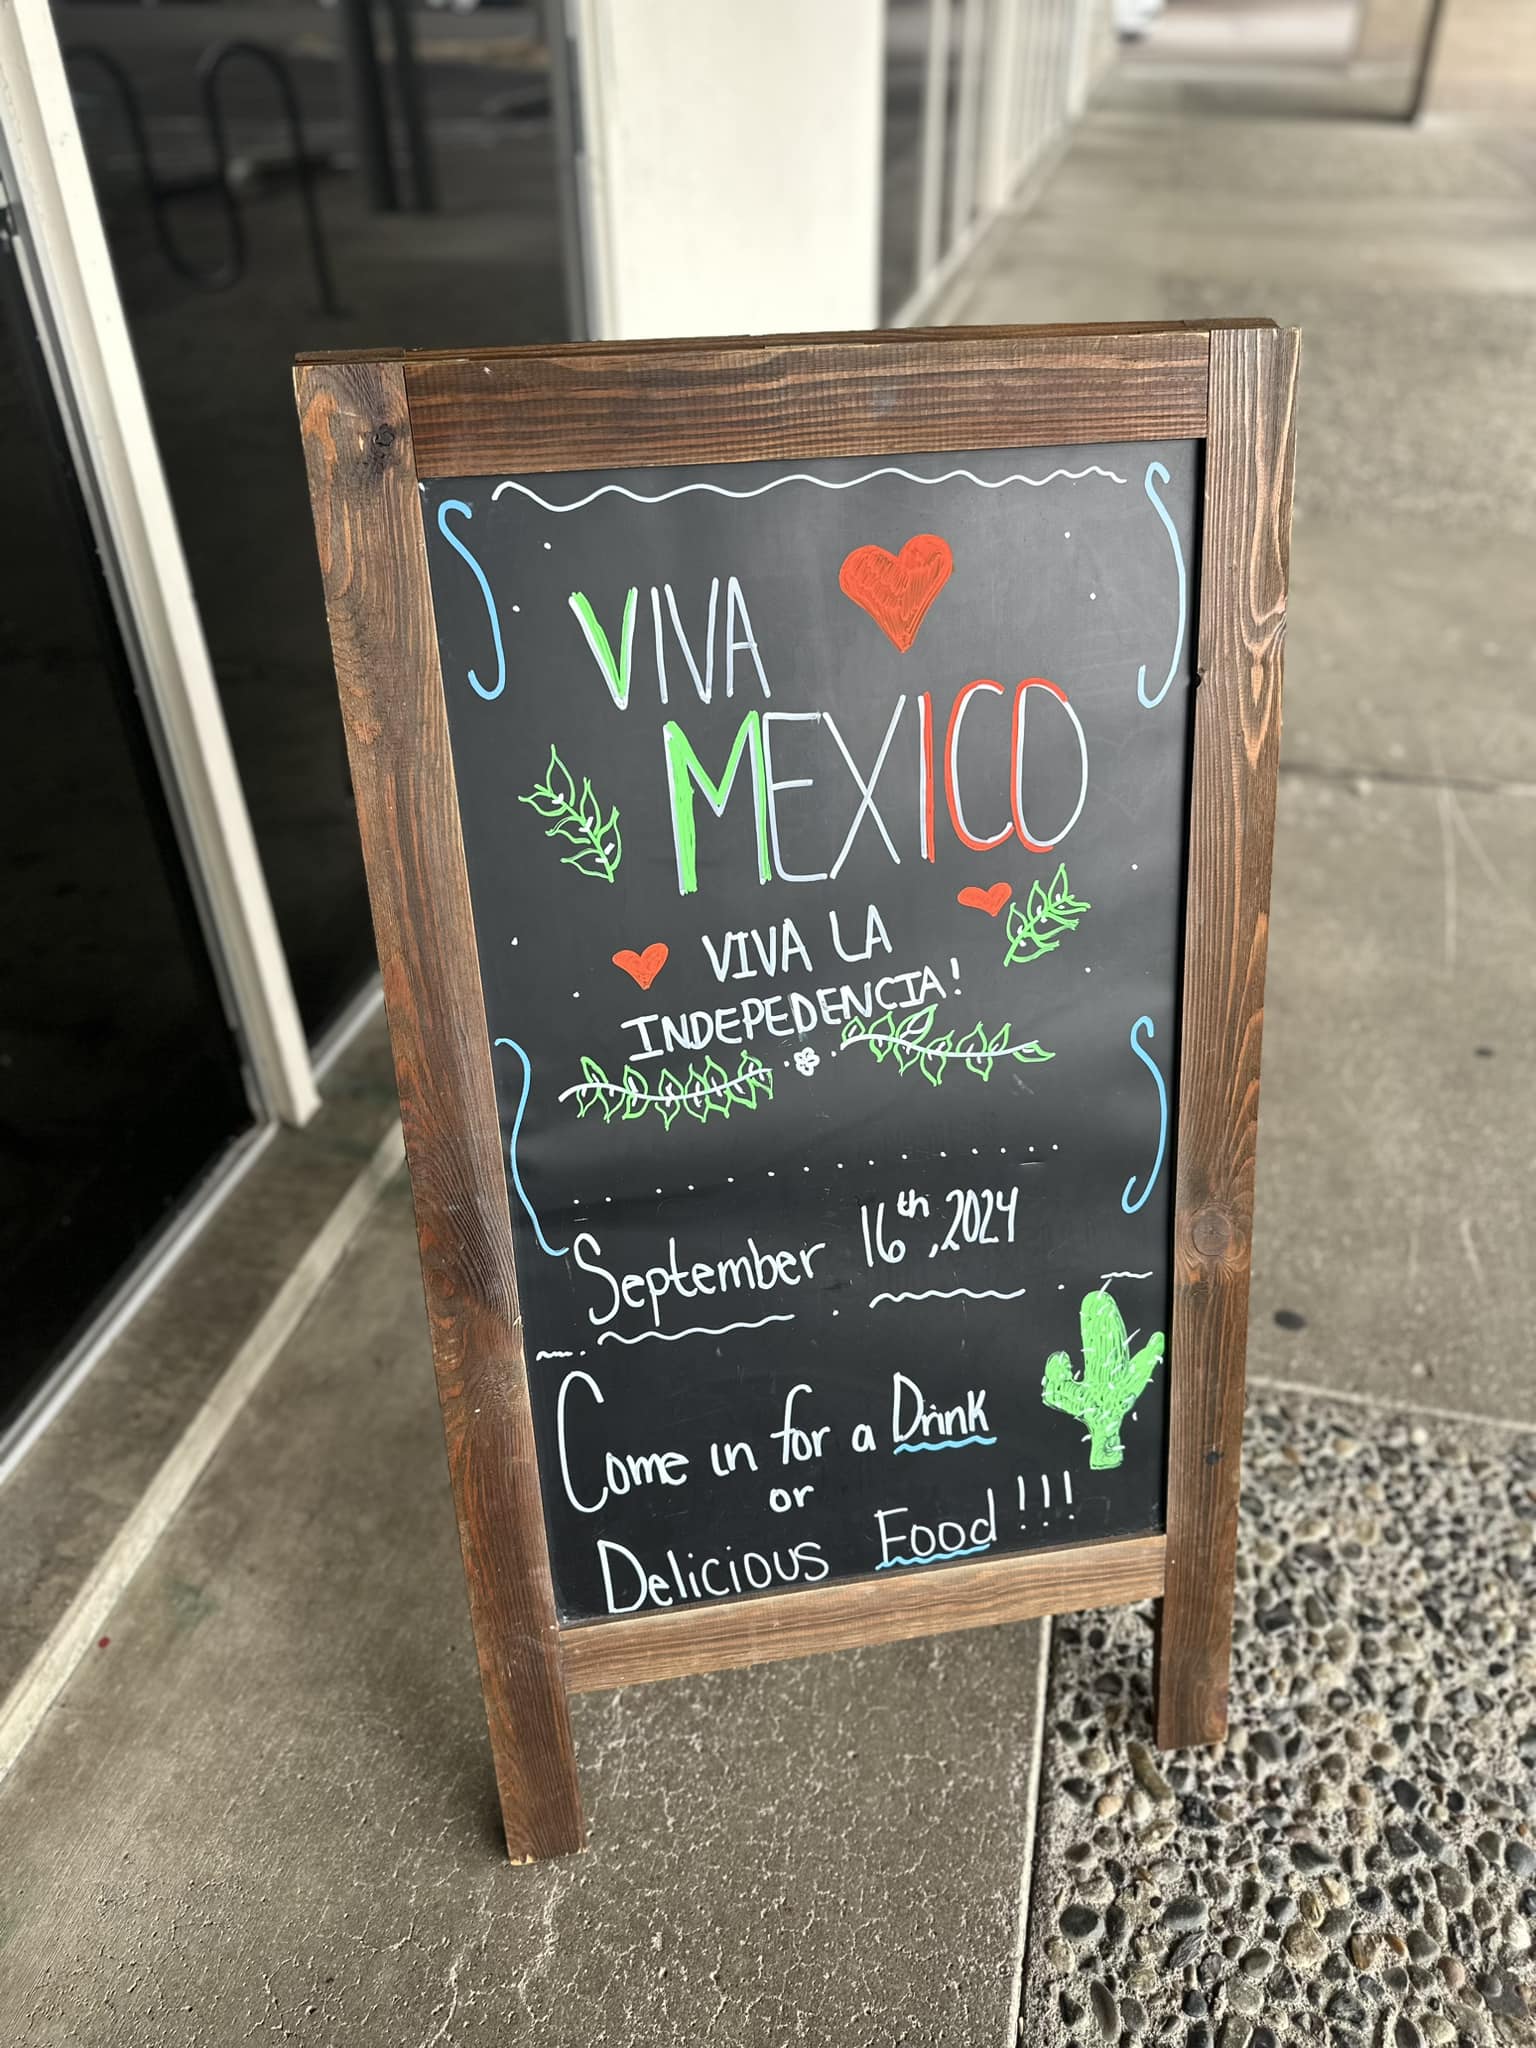 VIVA
MEXICO
VIVA LA
INDEPEDENCIA!
September 16th, 2024
Come in for a Drink
or
Delicious Food!!!